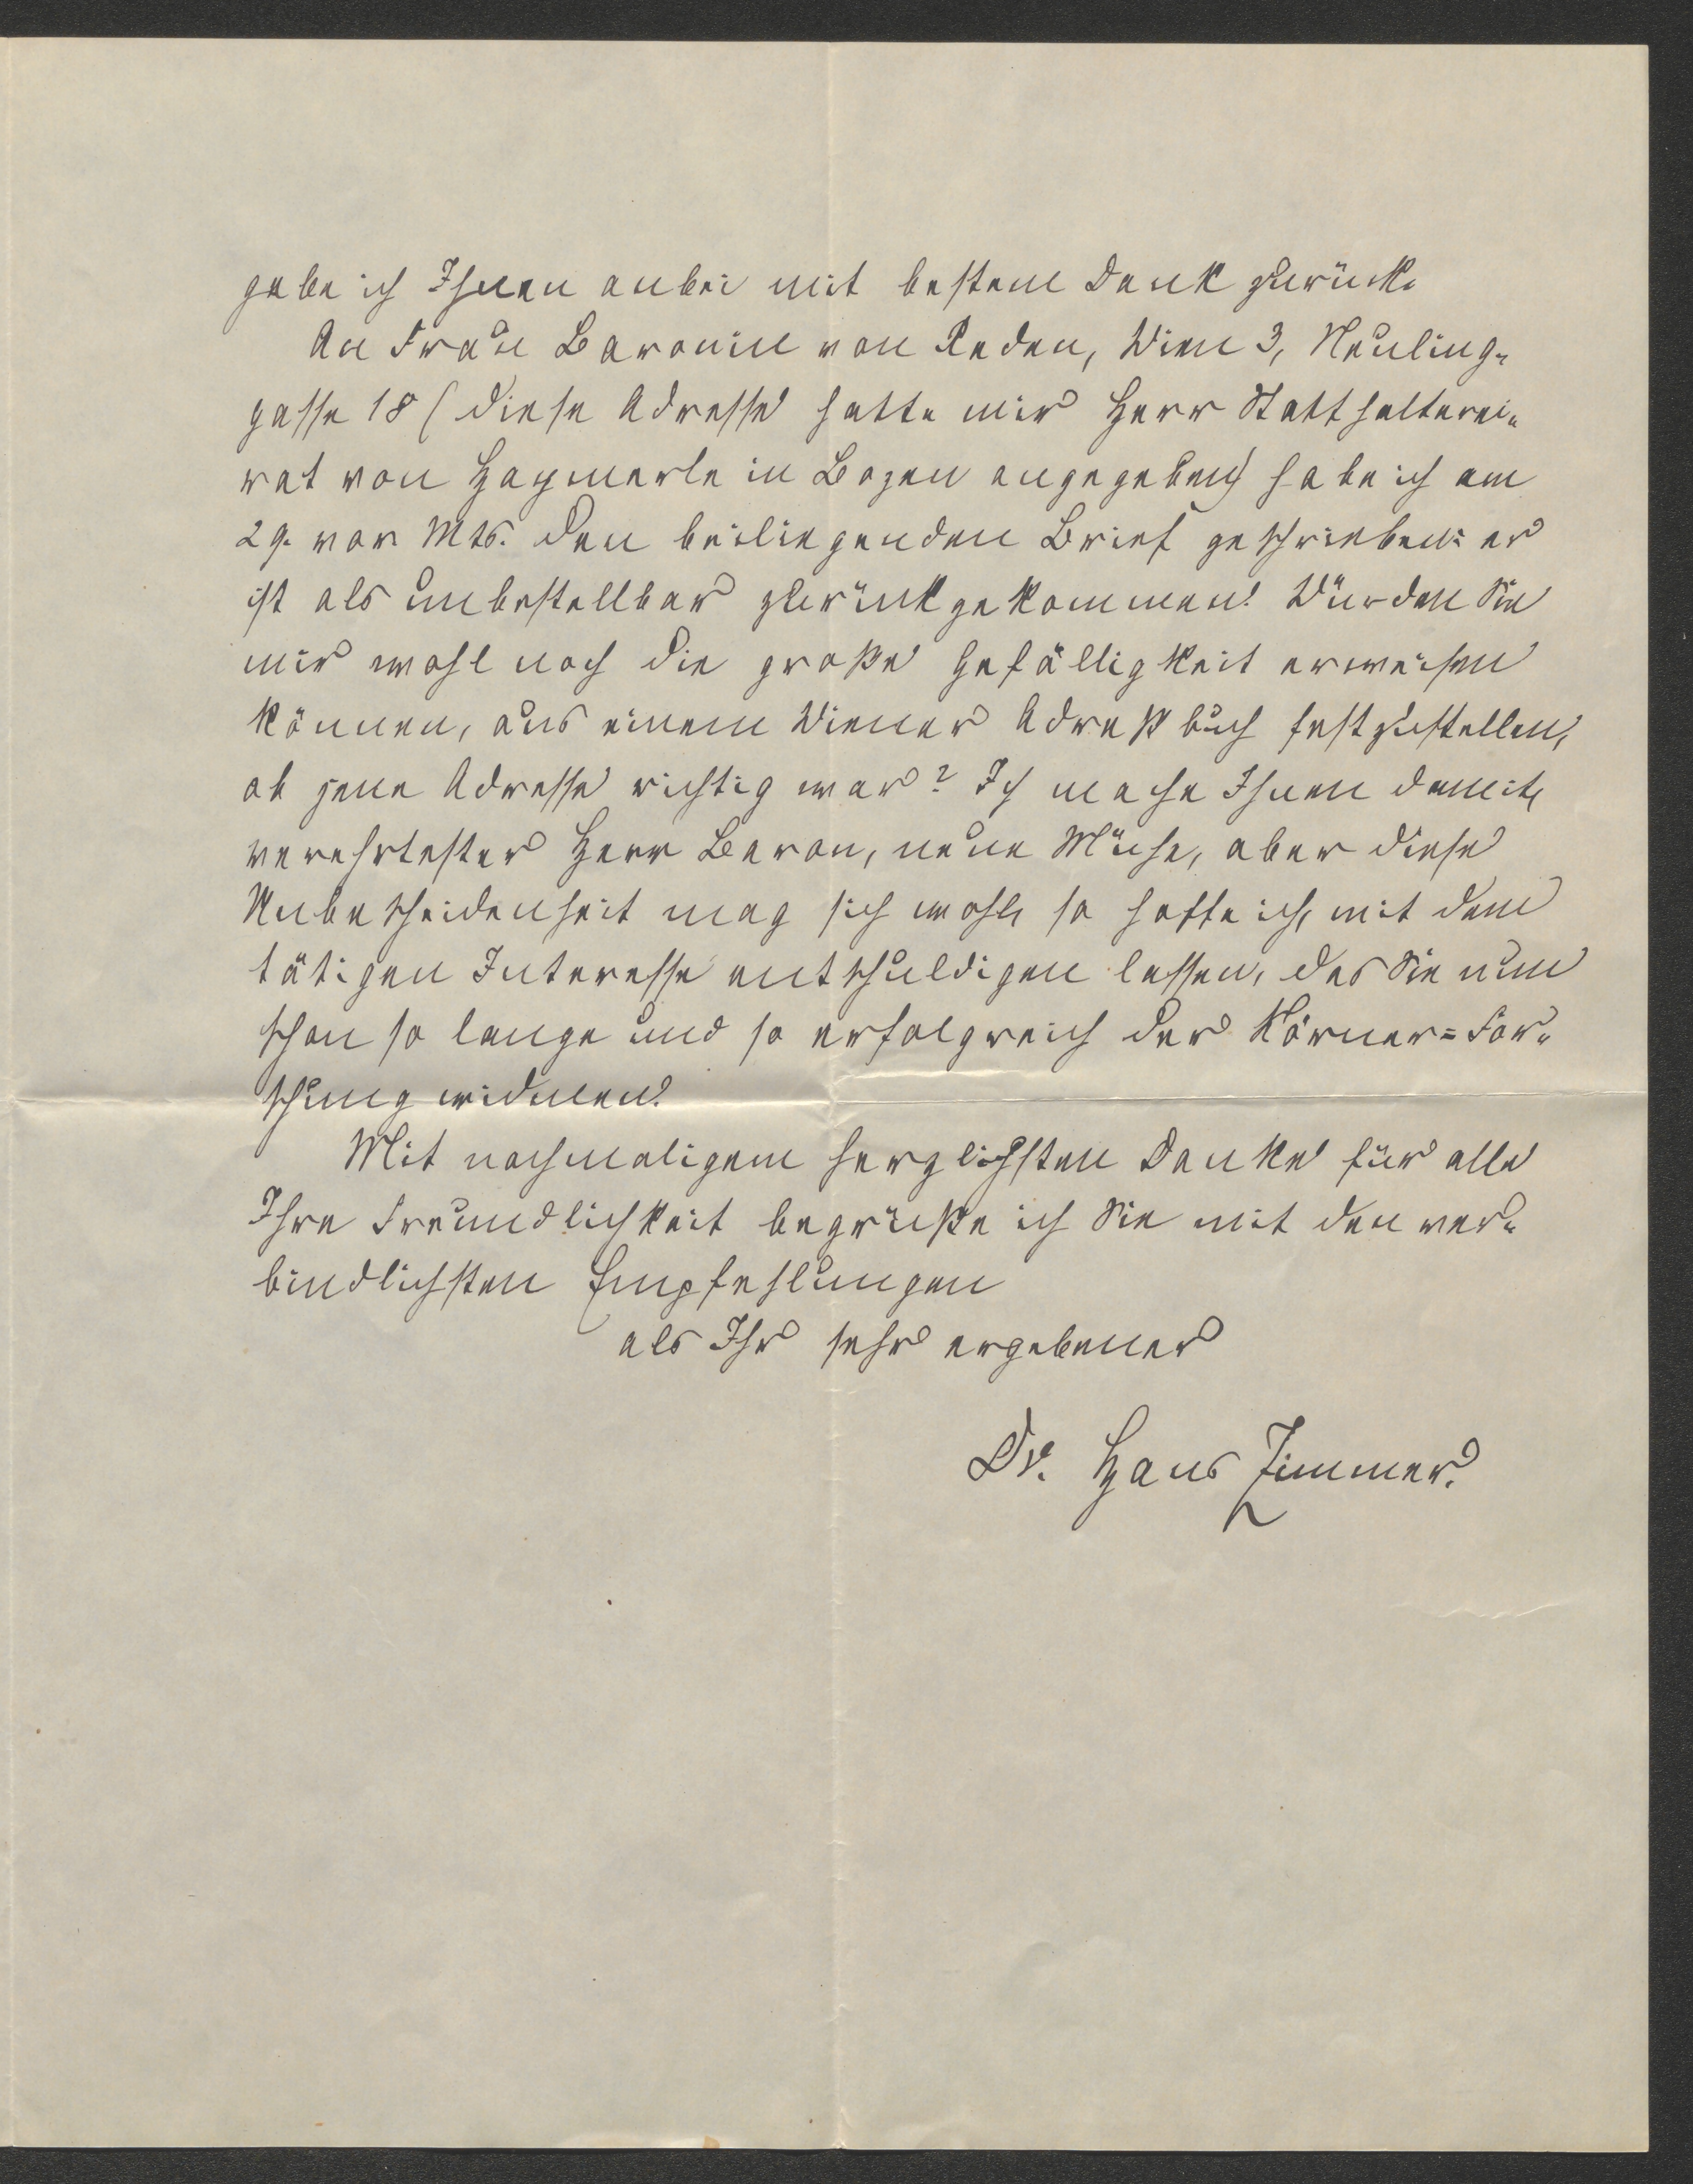 gebe ich Ihnen anbei mit bestem Dank zurück.
An Frau Baronin von Reden, Wien 3, Neuling-
gasse 18 (diese Adresse hatte mir Herr Statthalterei-
rat von Haymerle in Bozen angegeben) habe ich am
29. vor. Mts. den beiliegenden Brief geschrieben: er
ist als unbestellbar zurückgekommen! Würden Sie
mir wohl noch die große Gefälligkeit erweisen
können, aus einem Wiener Adreßbuch festzustellen,
ob jene Adresse richtig war? Ich mache Ihnen damit,
verehrtester Herr Baron, neue Mühe, aber diese
Unbescheidenheit mag sich wohl, so hoffe ich, mit dem
tätigen Interesse entschuldigen lassen, das Sie nun
schon so lange und so erfolgreich der Körner=For-
schung widmen.
Mit nochmaligem herzlichsten Danke für alle
Ihre Freundlichkeit begrüße ich Sie mit den ver-
bindlichsten Empfehlungen
als Ihr sehr ergebener
Dr. Hans Zimmer.